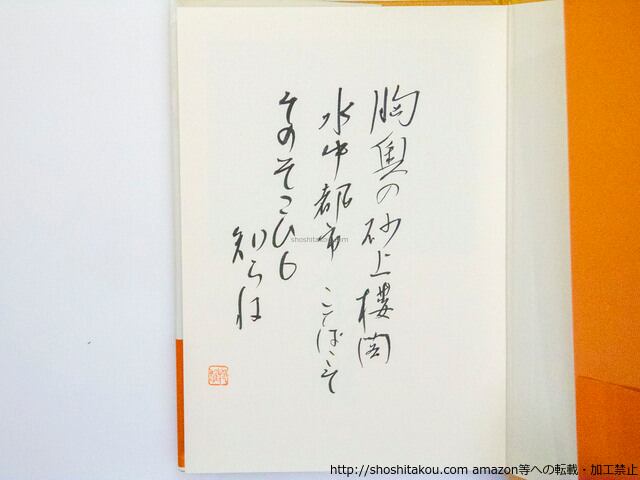 胸奥の砂上楼閣
水中都市 ことばこそ
そのそこひも
知らね
shoshitakou.com
http://shoshitakou.com amazon等への転載・加工禁止